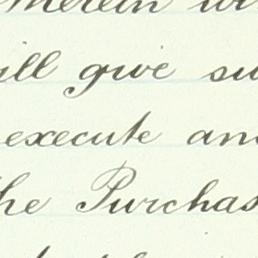 therein wi
ill give su
execute and
the Purchas